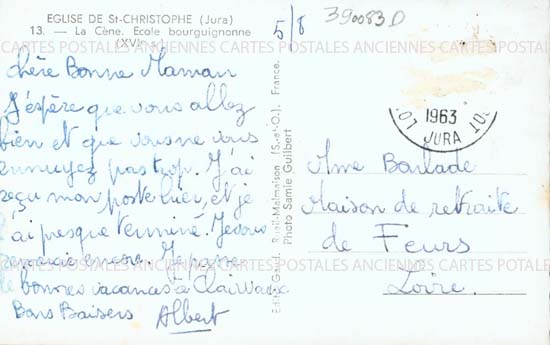 EGLISE DE St-CHRISTOPHE (Jura)
13. — La Cène. Ecole bourguignonne
(XVI
5/8
390083D
CARTES POSTALES ANCIENNES CARTES POSTALES ANCIENNES CARTES POSTALES
chère Bonne Maman
J'espère que vous allez
bien et que vous ne vous
ennuyez pas trop. J'ai
reçu mon poste hier, et je
l'ai presque terminé. Je vous
encore. Je passe
de bonnes vacances à Clairvaux
Bons Baisers Albert
Edit. Gaud, Rueil-Malmaison (S.-et-O.). France.
Photo Samie Guilbert
1963
JURA
Mme Barlade
Maison de retraite
de Feurs
Loire.
CARTES POSTALES ANCIENNES CARTES POSTALES ANCIENNES CARTES POSTALES